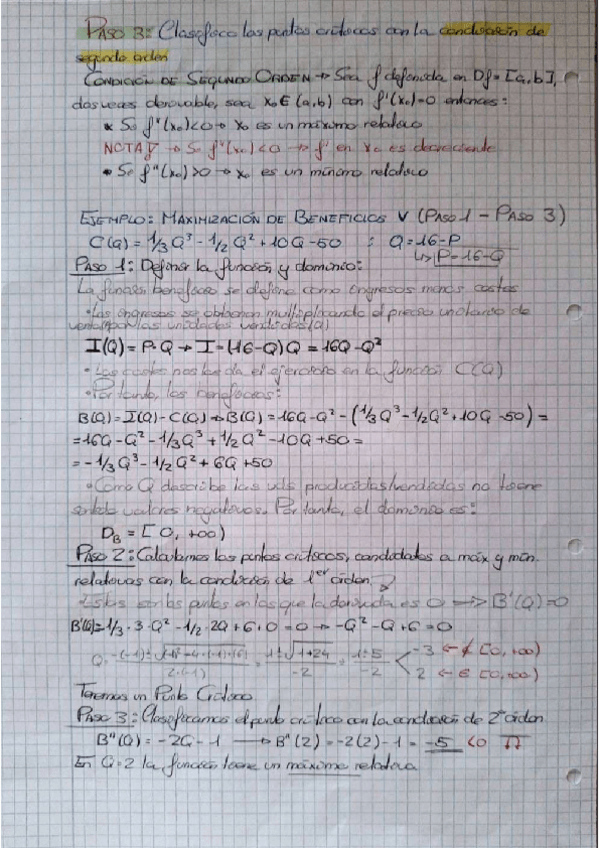 PASO 3: Clasifico los puntos críticos con la condición de
segundo orden
CONDICIÓN DE SEGUNDO ORDEN → Sea f definida en Df = [a,b],
dos veces derivable, sea x₀ ∈ (a,b) con f'(x₀)=0 entonces:
* Si f''(x₀)<0 → x₀ es un máximo relativo
NOTA → Si f''(x₀)<0 → f' en x₀ es decreciente
• Si f''(x₀)>0 → x₀ es un mínimo relativo
EJEMPLO: MAXIMIZACIÓN DE BENEFICIOS V (PASO 1 - PASO 3)
C(Q) = 1/3 Q³ - 1/2 Q² + 10Q - 50 ; Q = 16-P
↳ P = 16-Q
PASO 1: Definir la función y dominio:
La función beneficio se define como ingresos menos costes
• Los ingresos se obtienen multiplicando el precio unitario de
venta por las unidades vendidas (Q)
I(Q) = P·Q → I = (16-Q)Q = 16Q - Q²
• Los costes nos los da el ejercicio en la función C(Q)
• Por tanto, los beneficios:
B(Q) = I(Q) - C(Q) → B(Q) = 16Q - Q² - (1/3Q³ - 1/2Q² + 10Q - 50) =
= 16Q - Q² - 1/3Q³ + 1/2Q² - 10Q + 50 =
= -1/3Q³ - 1/2Q² + 6Q + 50
• Como Q describe las uds producidas/vendidas no tiene
sentido valores negativos. Por tanto, el dominio es:
D_B = [0, +∞)
PASO 2: Calculamos los puntos críticos, candidatos a máx y mín.
relativos con la condición de 1er orden.
Estos son los puntos en los que la derivada es 0 → B'(Q)=0
B'(Q) = 1/3 · 3 · Q² - 1/2 · 2Q + 6 + 0 = 0 → -Q² - Q + 6 = 0
= 1±√1+24 / -2 = 1±5 / -2 < -3 ← ∉ [0,+∞)
2 ← ∈ [0,+∞)
Tenemos un Punto Crítico
PASO 3: Clasificamos el punto crítico con la condición de 2º orden
B''(Q) = -2Q - 1 → B''(2) = -2(2) - 1 = -5 <0
En Q=2 la función tiene un máximo relativo